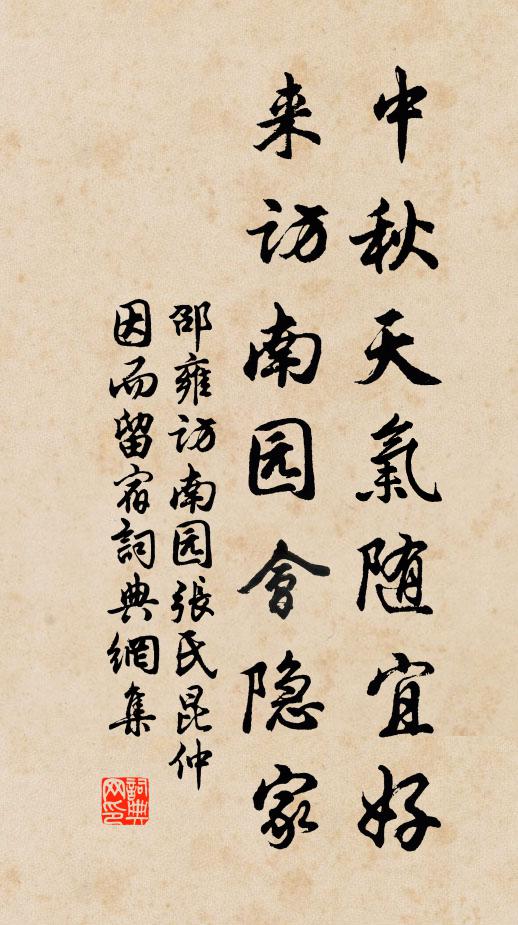 中秋天氣随宜好
来访南园會隐家
邵雍访南园張氏昆仲
因而留宿詞典網集
詞典
网印